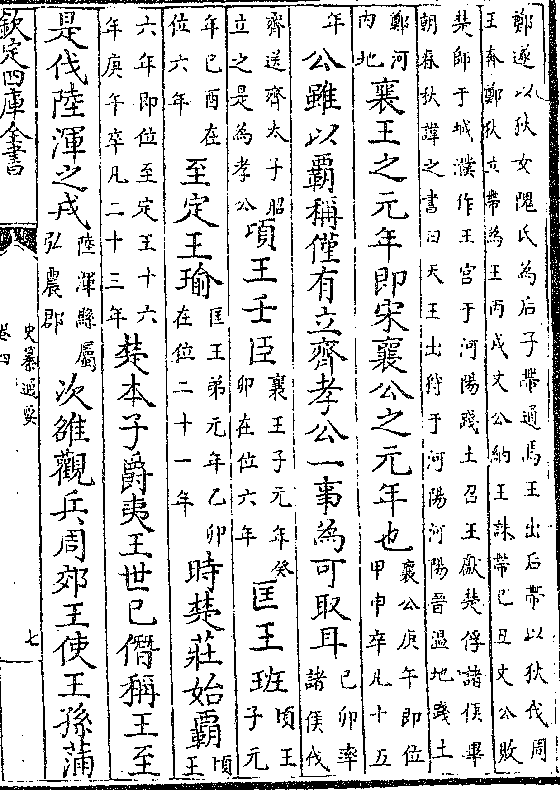 鄭遂以狄女隗氏為后子帶通焉王出后帶以狄伐周
王奔鄭狄立帶為王丙戌文公納王誅帶已丑文公敗
楚師于城濮作王宮于河陽踐土召王獻楚俘諸侯畢
朝春秋諱之書曰天王出狩于河陽河陽晉溫地踐土
鄭河
内地
襄王之元年即宋襄公之元年也
襄公庚午即位
甲申卒凡十五
年
公雖以霸稱僅有立齊孝公一事為可取耳
已卯率
諸侯伐
齊送齊太子昭
立之是為孝公
頃王壬臣
襄王子元年癸
卯在位六年
匡王班
頃王
子元
年已酉在
位六年
至定王瑜
匡王弟元年乙卯
在位二十一年
時楚莊始霸
頃
王
六年即位至定王十六
年庚午卒凡二十三年
楚本子爵夷王世已僭稱王至
是伐陸渾之戎
陸渾縣屬
弘農郡
次雒觀兵周郊王使王孫蒲
欽定四庫全書
史纂通要
卷四
七